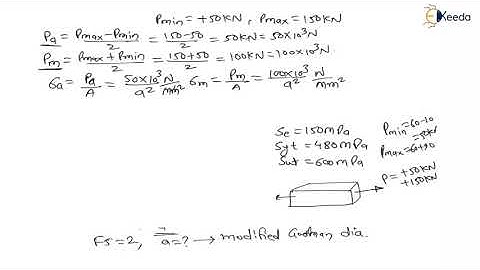 Ekeeda
Pmin = +50KN, Pmax = 150KN
Pa = Pmax-Pmin/2 = 150-50/2 = 50KN = 50x10³N
Pm = Pmax+Pmin/2 = 150+50/2 = 100KN = 100x10³N
σa = Pa/A = 50x10³/a² N/mm² σm = Pm/A = 100x10³/a² N/mm²
Se = 150MPa
Syt = 480MPa
Sut = 600MPa
Pmin = 60-10
= 50KN
Pmax = 60+90
P = +50KN
+150KN
FS=2, a=? → modified Goodman dia.